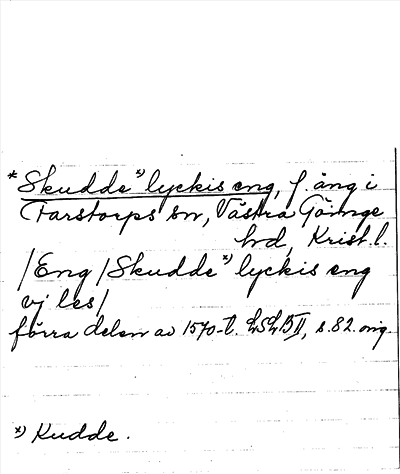 *Skudde*) lyckis eng, f. äng i
Farstorps sn, Västra Göinge
hd, Krist. l.
/Eng/Skudde*) lyckis eng
vj les/
förra delen av 1570-t. LSLB II, s. 82. orig.
*) Kudde.